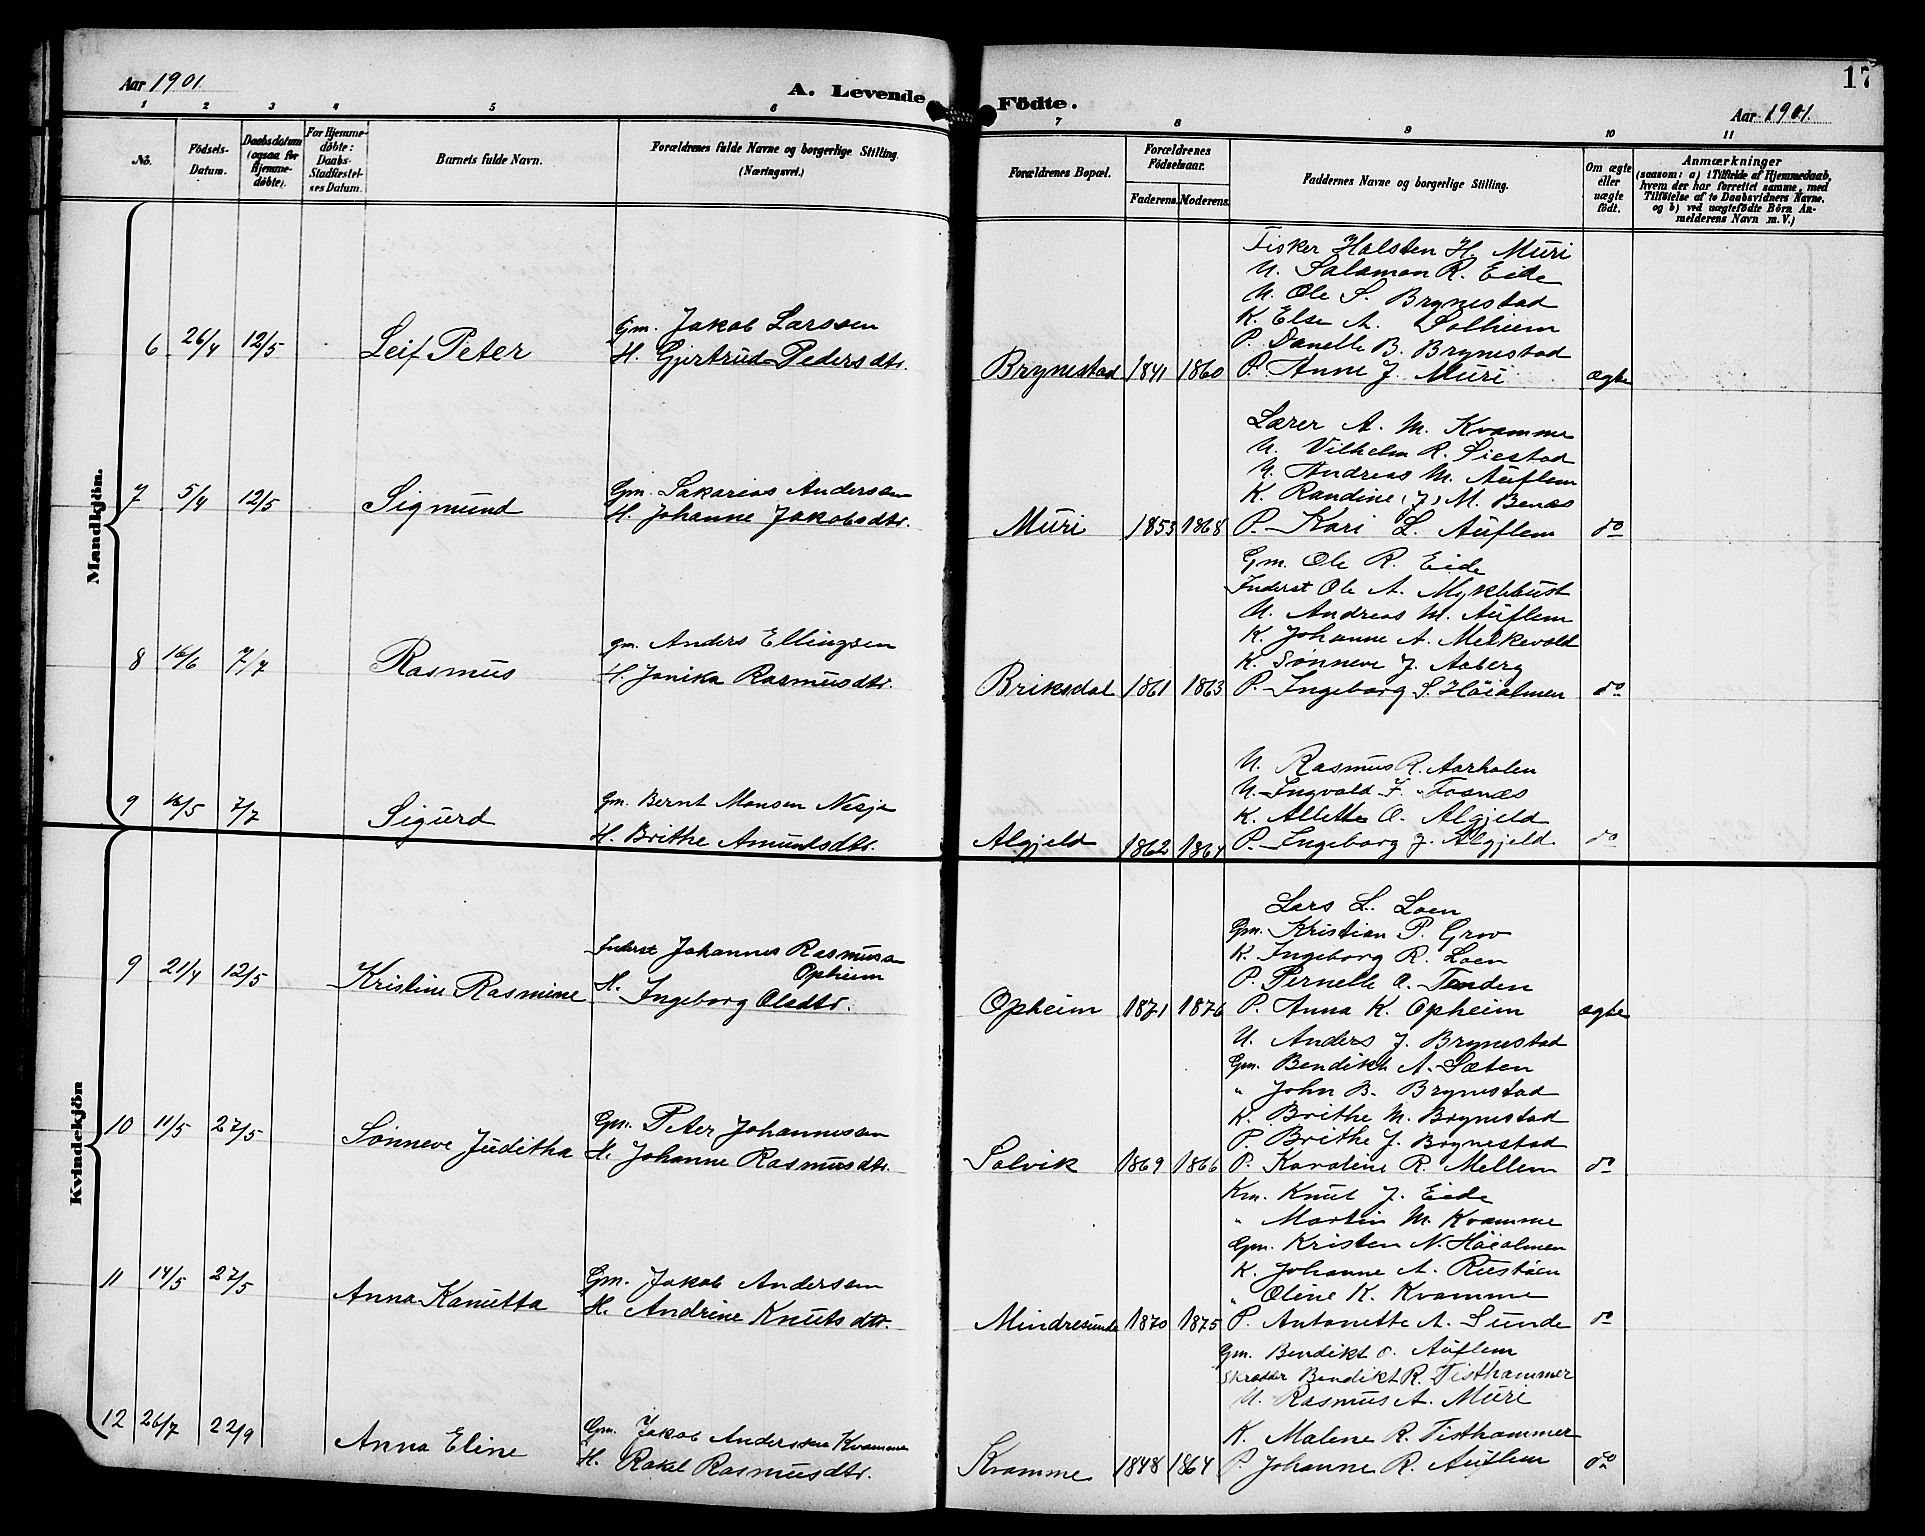 Aar 1901.
A. Levende Födte.
17
Aar 1901.
1 2 3 4 5 6 7 8 9 10 11
No.
Födsels-Datum.
Daabsdatum (ogsaa for Hjemme-döbte).
For Hjemme-döbte: Daabs-Stadfæstel-ses Datum.
Barnets fulde Navn.
Forældrenes fulde Navne og borgerlige Stilling. (Næringsvei.)
Forældrenes Bopæl.
Forældrenes Födselsaar.
Faderens. Moderens.
Faddernes Navne og borgerlige Stilling.
Om ægte eller uægte födt.
Anmærkninger
(saasom: a) i Tilfælde af Hjemmedaab, hvem der har forrettet samme, med Tilföielse af to Daabsvidners Navne, og b) ved uægtefödte Börn An-melderens Navn m. V.)
Mandkjön.
Fisker Halsten H. Muri
U. Salamon R. Eide
U. Ole S. Brynestad
K. Else A. Solheim
P. Danelle B. Brynestad
6 26/4 12/5 Leif Peter
Gm. Jakob Larssen
H. Gjertrud Pedersdtr.
Brynestad 1841 1860 P. Anne J. Muri ægte
Lærer A. M. Kvamme
U. Vilhelm R. Siestad
U. Andreas M. Auflem
K. Randine (J) M. Benæs
7 5/4 12/5 Sigmund
Gm. Sakarias Anderssen
H. Johanne Jakobsdtr.
Muri 1853 1868 P. Kari L. Auflem do
Gm. Ole R. Eide
Inderst Ole A. Myklebust
U. Andreas M. Auflem
K. Johanne A. Melkevold
K. Sønneve J. Aaberg
8 16/6 7/7 Rasmus
Gm. Anders Ellingsen
H. Jonika Rasmusdtr.
Briksdal 1861 1863 P. Ingeborg S. Höialmen do
U. Rasmus R. Aarholen
U. Ingvald F. Fosnæs
K. Allethe O. Algjeld
9 16/5 7/7 Sigurd
Gm. Bernt Monsen Nesje
H. Brithe Amundsdtr.
Algjeld 1862 1864 P. Ingeborg J. Algjeld do
Kvindekjön
Lars L. Loen
Gm. Kristian P. Grov
K. Ingeborg R. Loen
P. Pernelle O. Tenden
9 21/4 12/5 Kristine Rasmine
Inderst Johannes Rasmuss
Opheim
H. Ingeborg Olsdtr.
Opheim 1871 1876 P. Anna K. Opheim ægte
U. Anders J. Brynestad
Gm. Bendikt A. Sæten
" John B. Brynestad
K. Brithe M. Brynestad
P. Brithe J. Brynestad
10 11/5 27/5 Sønneve Juditha
Gm. Peter Johannessen
H. Johanne Rasmusdtr.
Solvik 1869 1866 P. Karoline R. Mellem do
Km. Knut J. Eide
" Martin M. Kvamme
Gm. Kristen N. Höialmen
K. Johanne A. Rustöen
" Oline K. Kvamme
11 14/5 27/5 Anna Kanutta
Gm. Jakob Anderssen
H. Andrine Knutsdtr.
Mindresunde 1870 1875 P. Antonette A. Sunde do
Gm. Bendikt O. Auflem
Skrædder Bendikt R. Tisthammer
U. Rasmus A. Muri
K. Malene R. Tisthammer
12 26/7 22/9 Anna Eline
Gm. Jakob Anderssen Kvamme
H. Rakel Rasmusdtr.
Kvamme 1848 1864 P. Johanne R. Auflem do